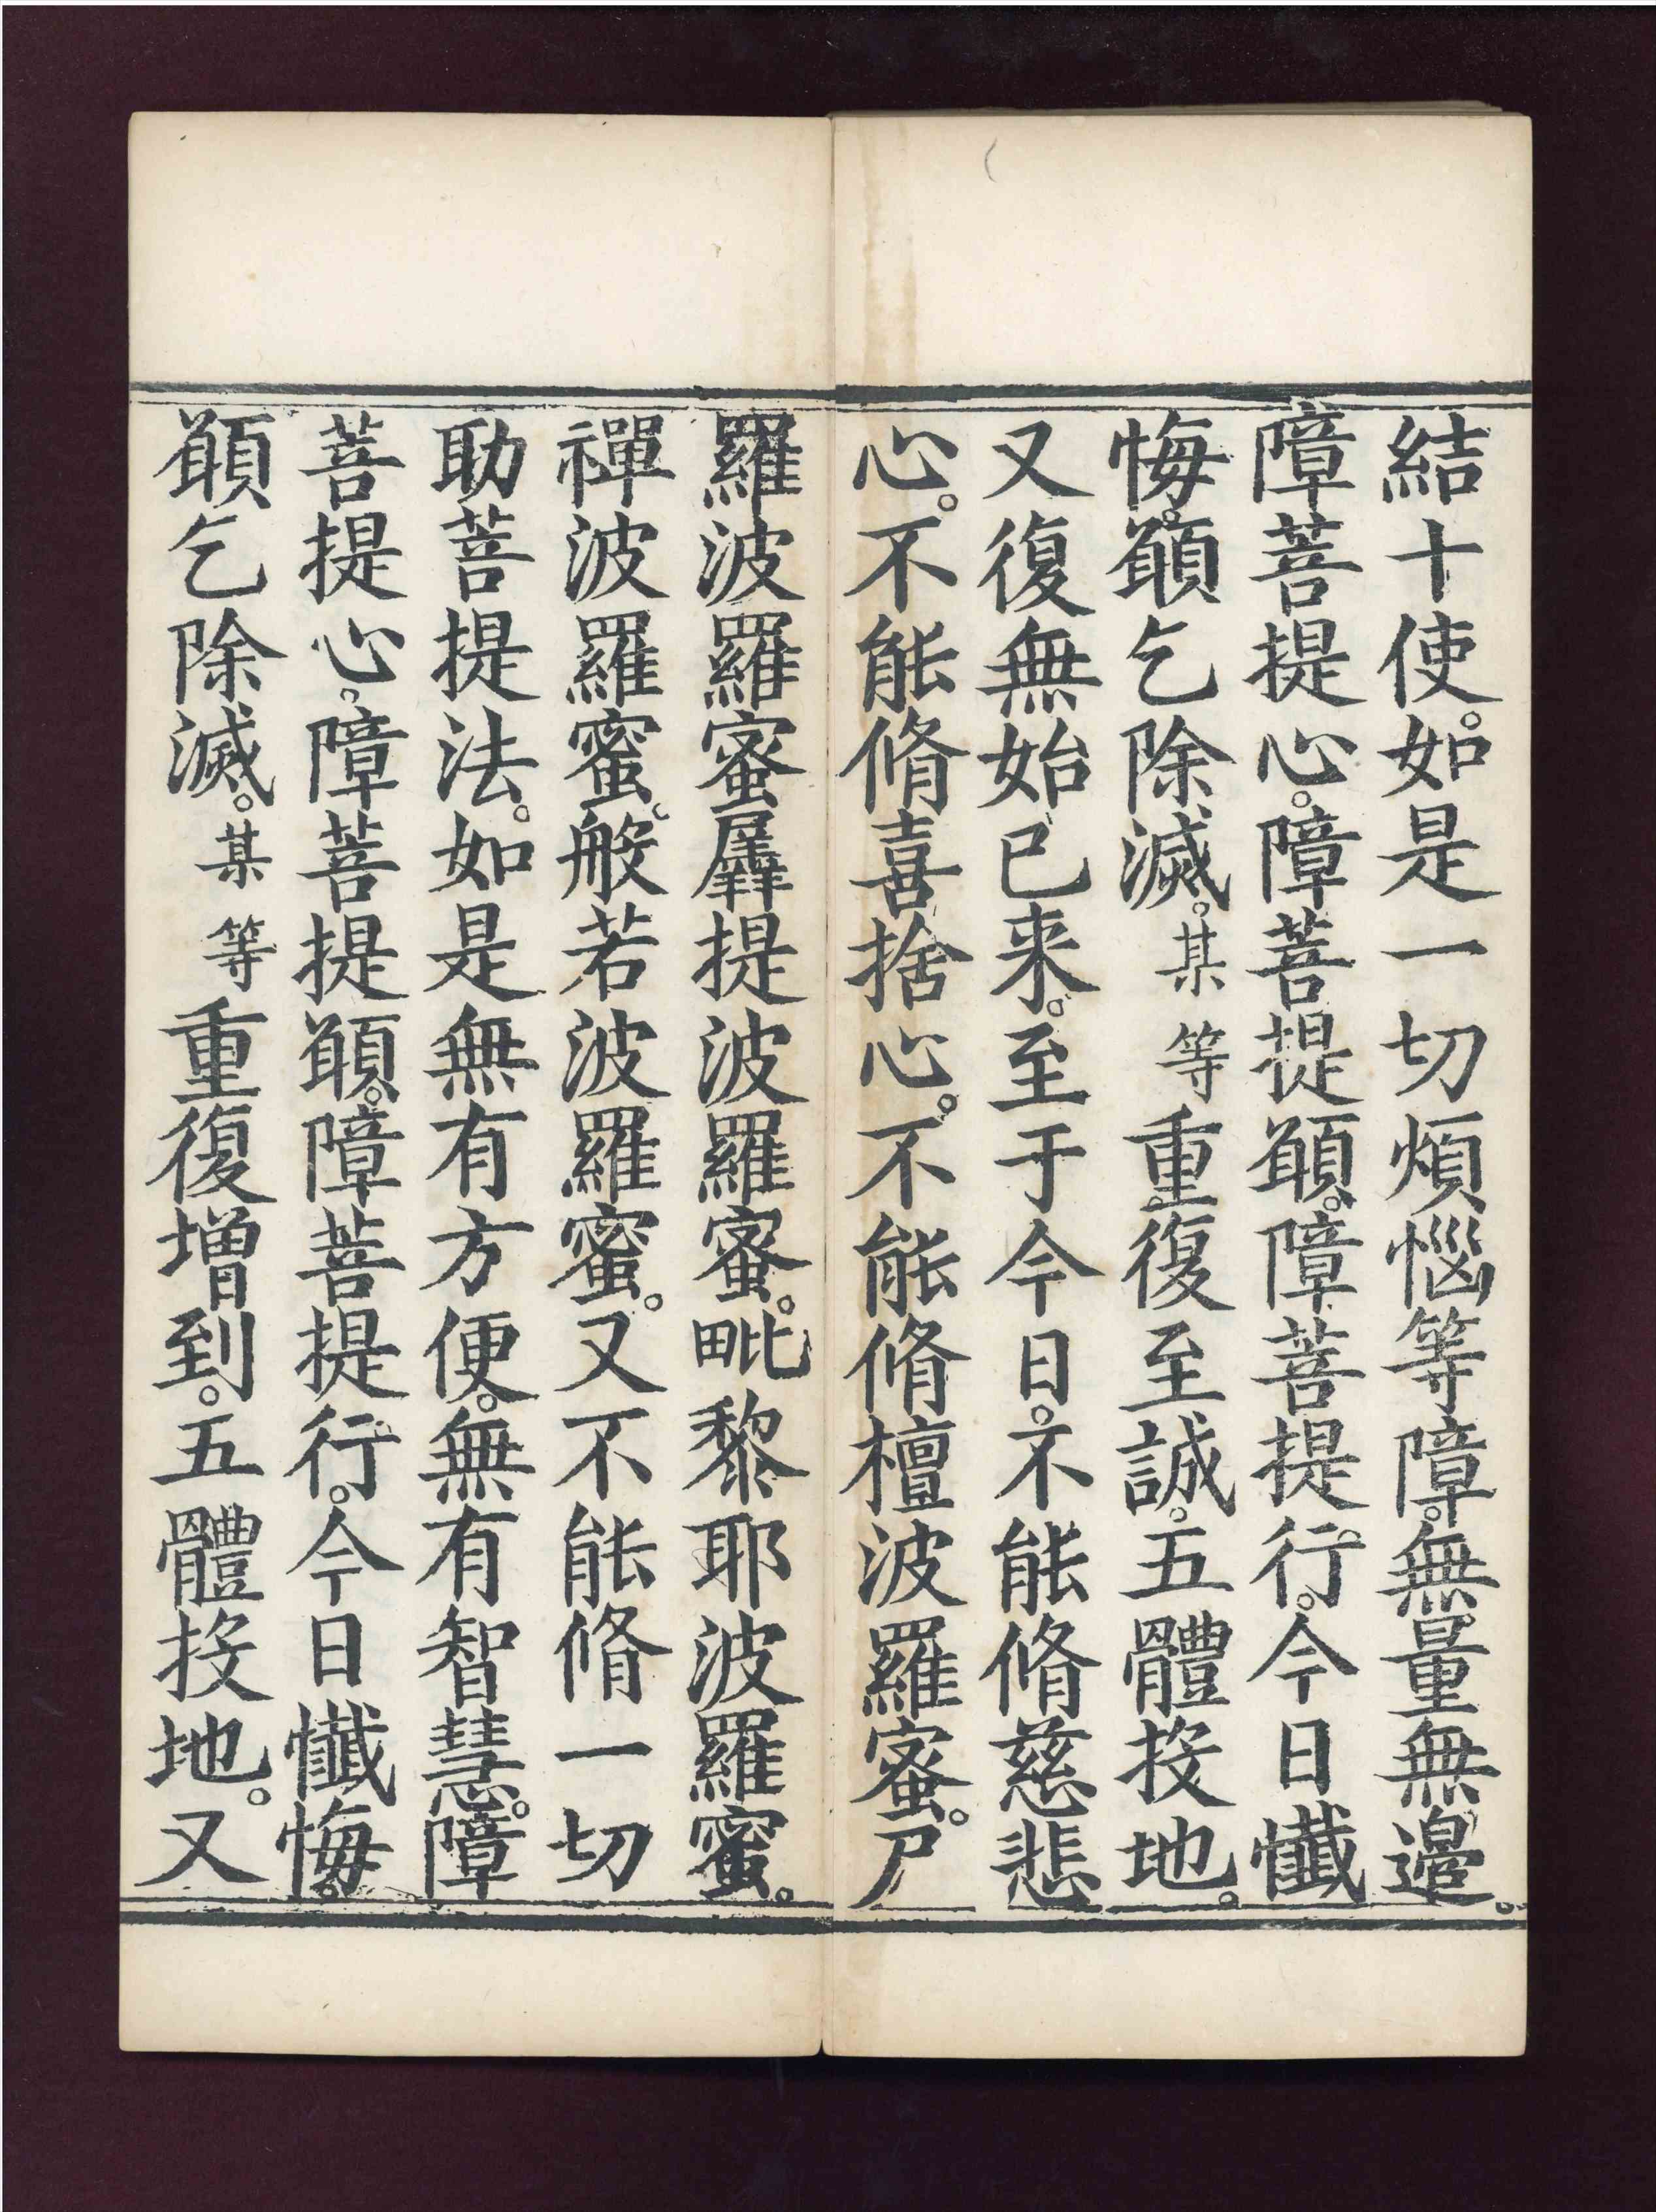 結十使。如是一切煩惱等障。無量無邊。
障菩提心。障菩提願。障菩提行。今日懺
悔。願乞除滅。某等重復至誠。五體投地。
又復無始已来。至于今日。不能脩慈悲
心。不能脩喜捨心。不能脩檀波羅蜜。尸
羅波羅蜜羼提波羅蜜。毗黎耶波羅蜜。
禪波羅蜜。般若波羅蜜。又不能脩一切
助菩提法。如是無有方便。無有智慧。障
菩提心。障菩提願。障菩提行。今日懺悔。
願乞除滅。某等重復增到。五體投地。又